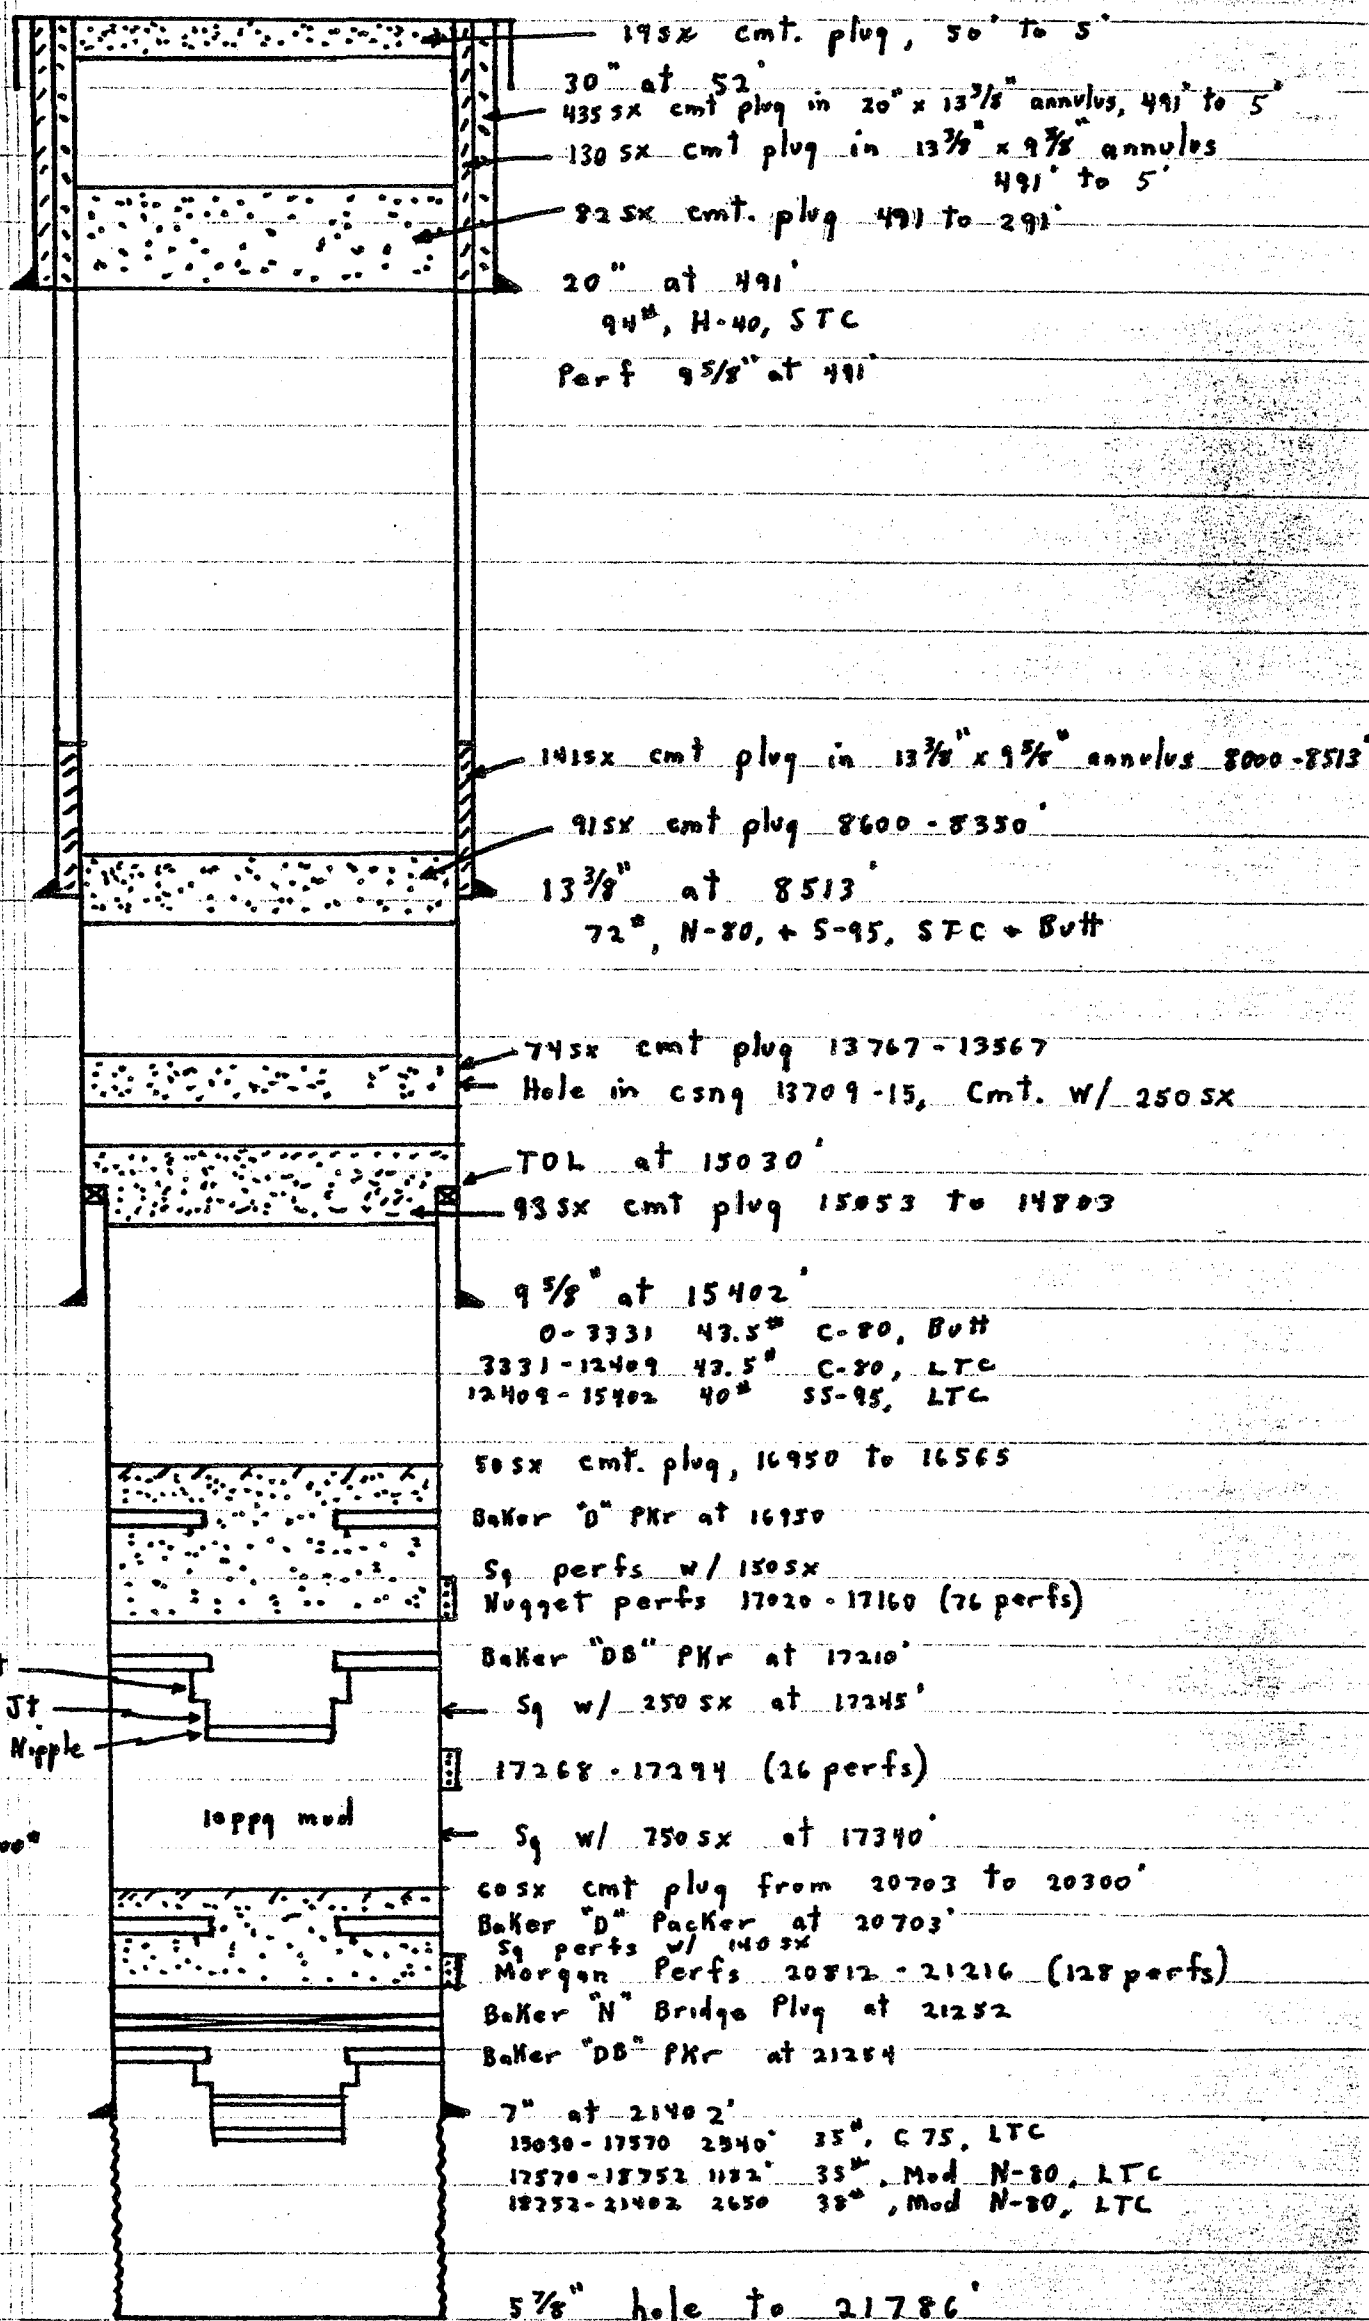 19sx cmt. plug, 50' to 5'
30" at 52'
435 sx cmt plug in 20" x 13 3/8" annulus, 491' to 5'
130 sx cmt plug in 13 3/8" x 9 5/8" annulus
491' to 5'
82 sx cmt. plug 491 to 291'
20" at 491'
94#, H-40, STC
Perf 9 5/8" at 491'
141sx cmt plug in 13 3/8" x 9 5/8" annulus 8000-8513'
91sx cmt plug 8600-8350'
13 3/8" at 8513'
72#, N-80, + S-95, STC + Butt
74sx cmt plug 13767-13567
Hole in csng 13709-15, Cmt. w/ 250 sx
TOL at 15030'
93 sx cmt plug 15053 to 14803
9 5/8" at 15402'
0-3331 43.5# C-80, Butt
3331-12409 43.5# C-80, LTC
12409-15402 40# SS-95, LTC
50 sx cmt. plug, 16950 to 16565
Baker "D" PKr at 16950
Sq perfs w/ 150 sx
Nugget perfs 17020-17160 (76 perfs)
Baker "DB" PKr at 17210'
Jt
Sq w/ 250 sx at 17245'
Nipple
17268-17294 (26 perfs)
10ppg mud
Sq w/ 750 sx at 17340'
60 sx cmt plug from 20703 to 20300'
Baker "D" Packer at 20703'
Sq perfs w/ 140 sx
Morgan Perfs 20812-21216 (128 perfs)
Baker "N" Bridge Plug at 21252
Baker "DB" PKr at 21254
7" at 21402'
15030-17570 2540' 35#, C 75, LTC
17570-18752 1182' 35#, Mod N-80, LTC
18752-21402 2650 38#, Mod N-80, LTC
5 7/8" hole to 21786'